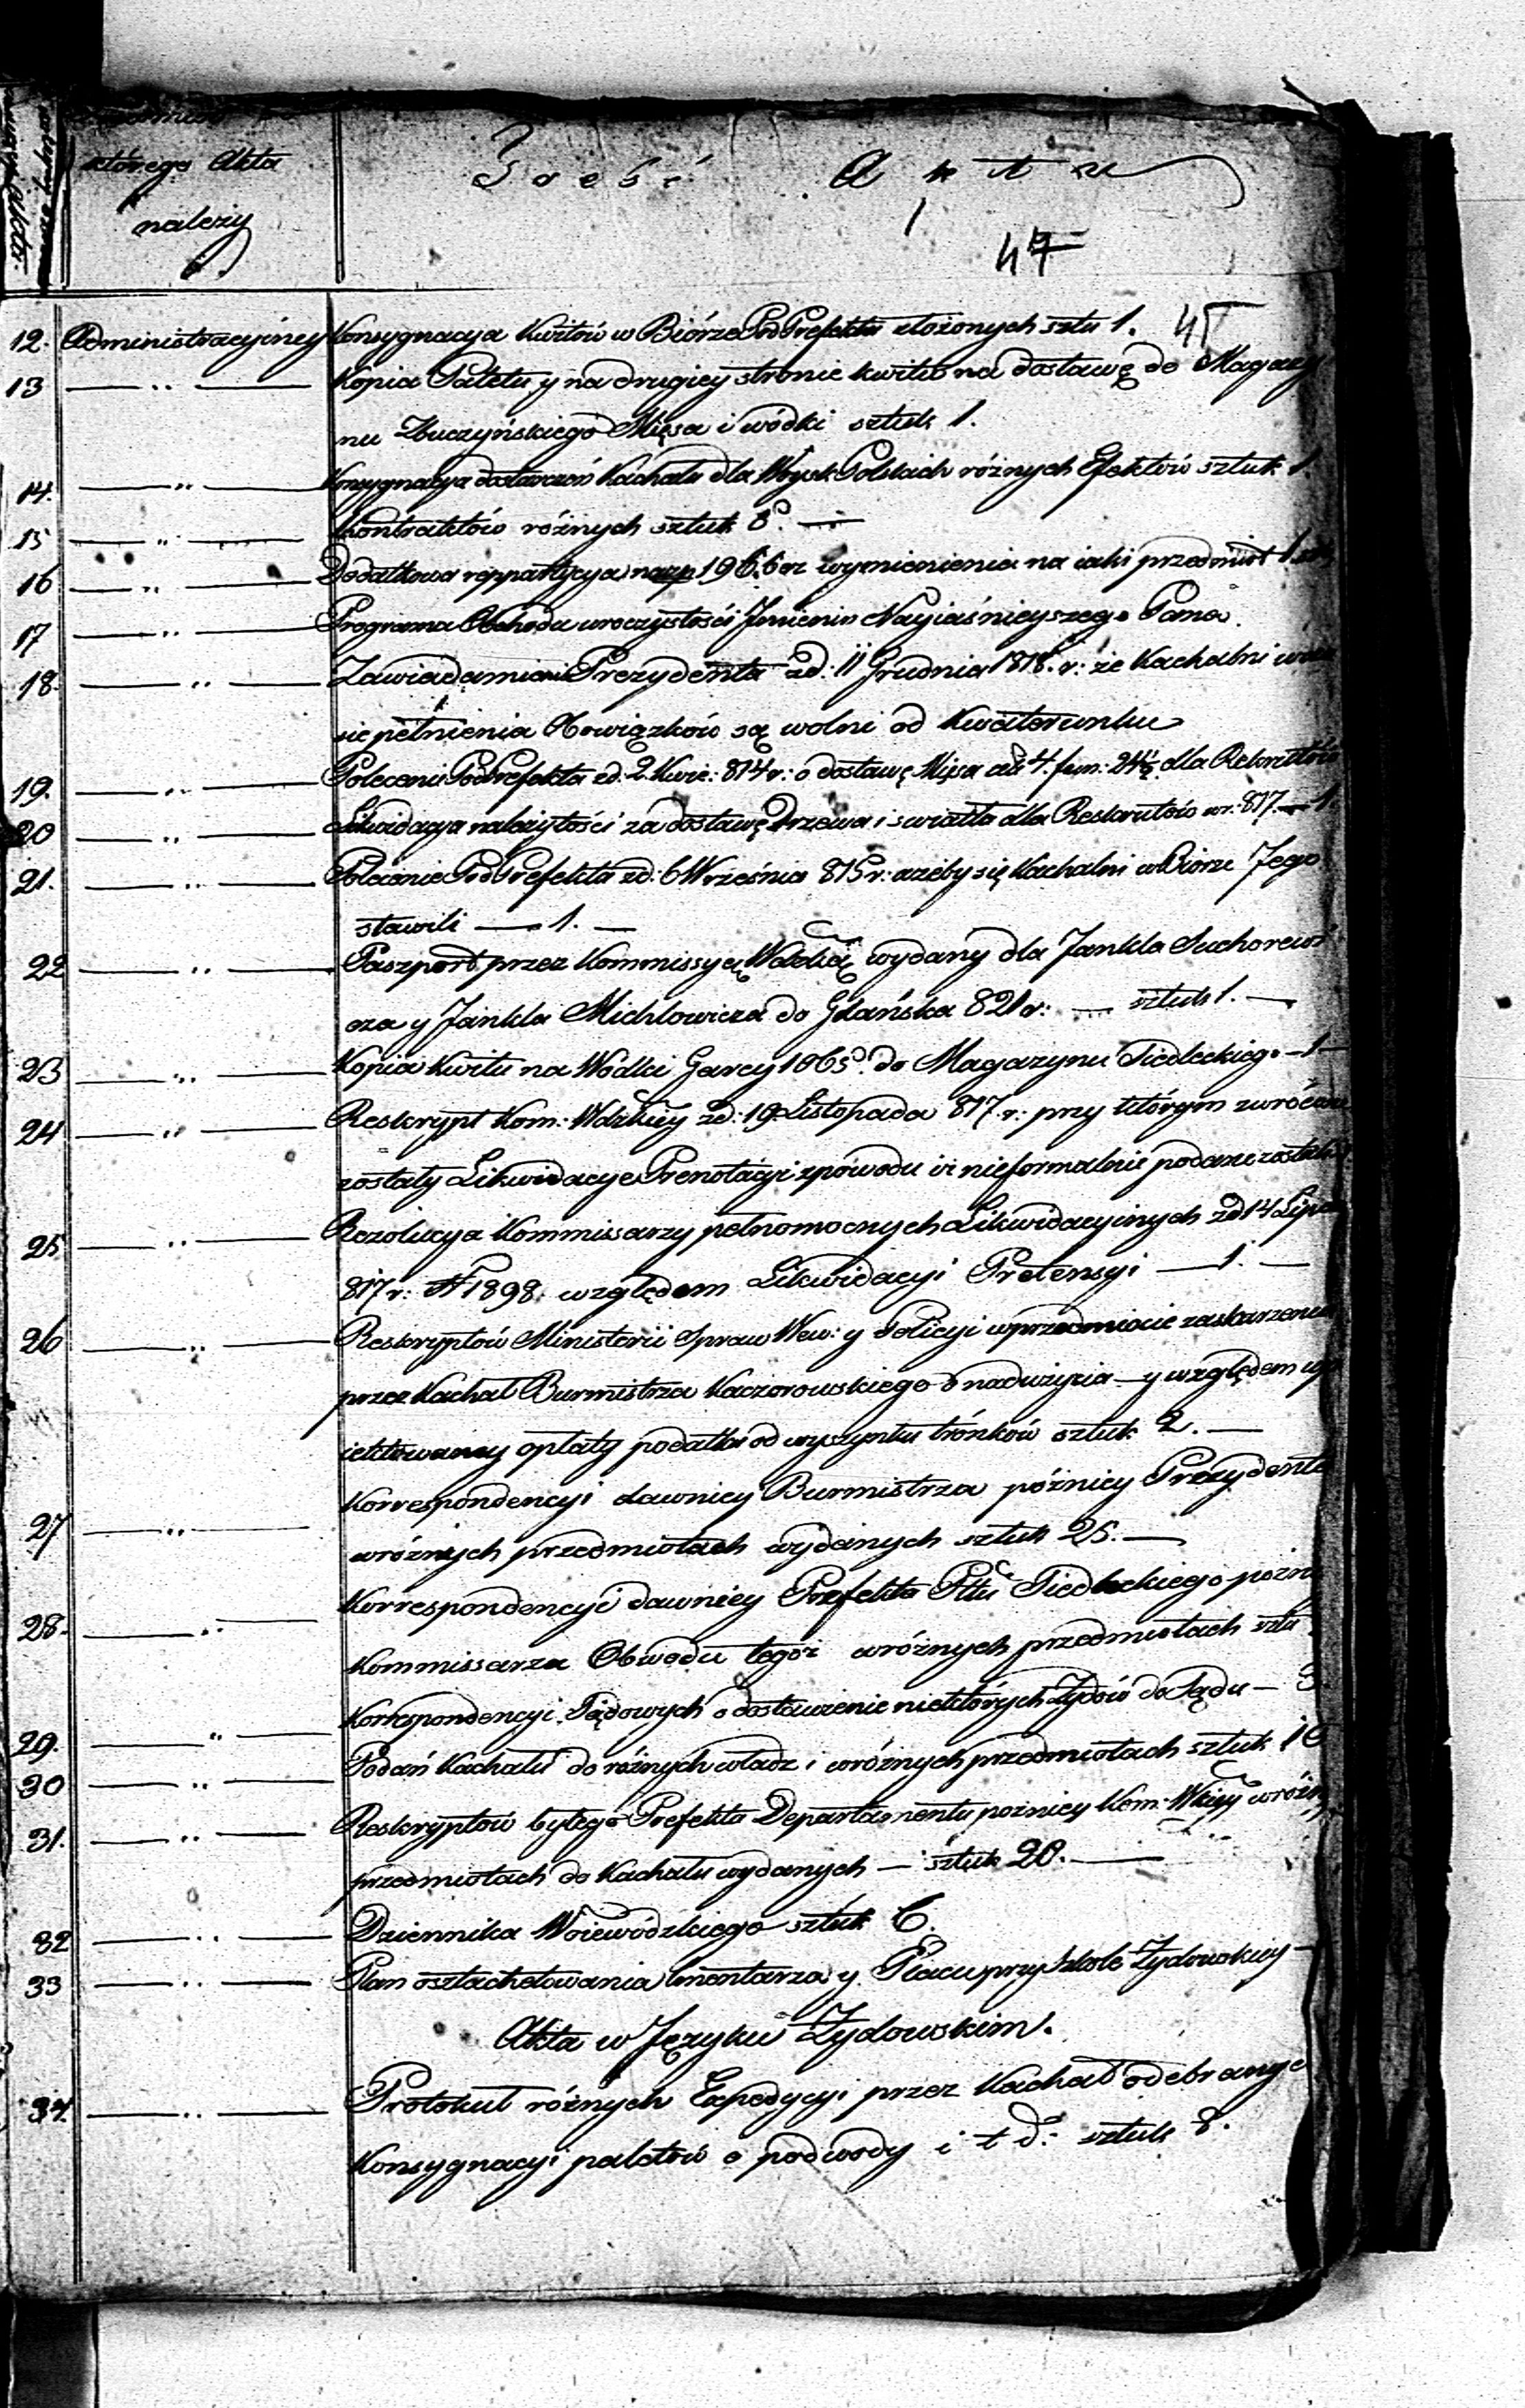 którego Akta
należy
Treść Aktu
47
45
12. Administracyiney Konsygnacya Kwitów w Biórze PodPrefekta złożonych sztu 1.
13 — " — Kopia Paletu y na drugiey stronie kwitu na dostawę do Magazy
nu Zbuczyńskiego Mięsa i wódki sztuk 1.
14. — " — Konsygnacya dostarczeń Kachału dla Woysk Polskich różnych Efektów sztuk 1.
15 — " — Kontraktów różnych sztuk 8. —
16 — " — Dodatkowa reppartycya na zp 1966 bez wymienienia na iaki przedmiot 1
17 — " — Programa Obchodu uroczystości Jmienin Nayiaśnieyszego Pana.
18. — " — Zawiadomienie Prezydenta zd: 11 Grudnia 1818. r: że Kachalni w
sie pełnienia Obowiązków są wolni od Kwaterunku
19. — " — Polecenie PodPrefekta zd: 2. Kwie: 814 r: o dostawę Mięsa cet: 4. fun: 24½ dla Rekrutów
20 — " — Likwidacya należytości za dostawę Drzewa i swiatła dla Reskrutów wr: 817. — 1.
21. — " — Polecenie PodPrefekta zd: 6 Września 815 r: ażeby się Kachalni w Biórze Jego
stawili — 1. —
22 — " — Paszport przez Kommissyą Wdzką wydany dla Jankla Suchorewi
cza y Jankla Michlowicza do Gdańska 821 r: — sztuk 1. —
23 — " — Kopia Kwitu na Wodki Garcy 1065. do Magazynu Siedleckiego — 1 —
24 — " — Reskrypt Kom: Wdzkiey zd: 19. Listopada 817. r: przy którym zwrócone
zostały Likwidacye Prenotacyi zpowodu iż nieformalnie podane zostały
25 — " — Rezolucya Kommissarzy pełnomocnych Likwidacyinych zd 14 Lipca
817 r: N 1898. względem Likwidacyi Pretensyi — 1. —
26 — " — Reskryptów Ministerii Spraw Wew: y Policyi wprzedmiocie zaskarzenia
przez Kachał Burmistrza Kaczorowskiego o nadużycia — y względem
opłaty podatku od wyszynku trónków sztuk 2. —
27 — " — Korrespondencyi dawniey Burmistrza późniey Prezydenta
wróżnych przedmiotach wydanych sztuk 25. —
28. — " — Korrespondencyi dawniey Prefekta Pttu Siedleckiego poźni
Kommissarza Obwodu tegoż wróżnych przedmiotach sztu
29. — " — Korrespondencyi Sądowych o dostawienie niektórych Żydów do Sądu — 3
30 — " — Podań Kachału do różnych władz i wróżnych przedmiotach sztuk 16
31. — " — Reskryptów byłego Prefekta Departamentu poźniey Kom: Wdzkiey wróżny
przedmiotach do Kachału wydanych — sztuk 20. —
32 — " — Dziennika Woiewódzkiego sztuk 6.
33 — " — Plan osztachetowania Cmentarza y Placu przy Szkole Żydowskiey —
Akta w Języku Żydowskim.
34. — " — Protokuł różnych Expedycyi przez Kachał odebranyc
Konsygnacyi paletów o podwody i t d: sztuk 8.